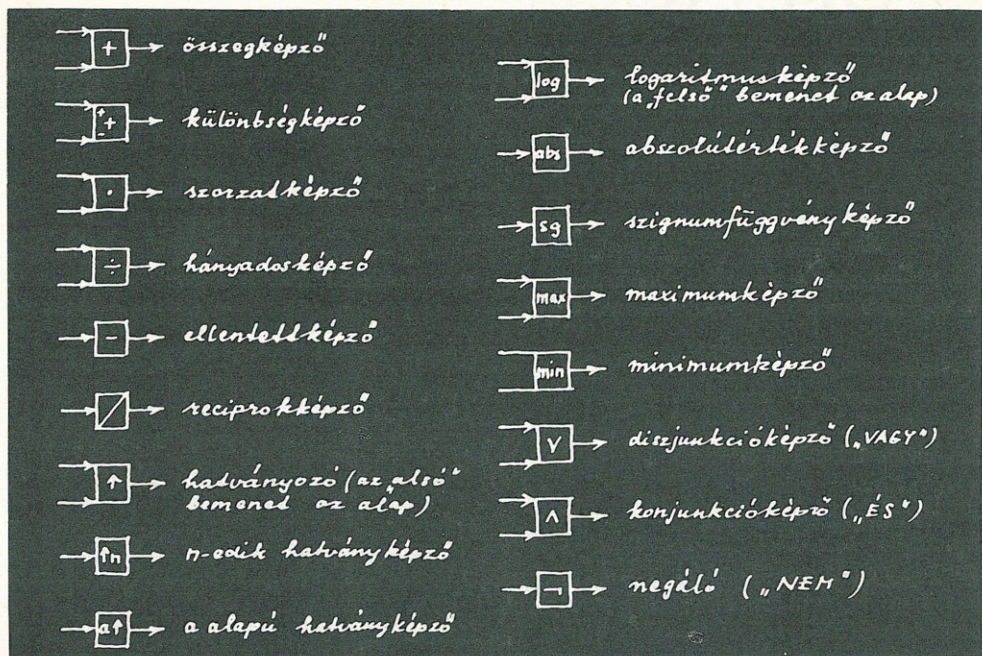 + összegképző
+ + - különbségképző
· szorzatképző
÷ hányadosképző
- ellentettképző
reciprokképző
↑ hatványozó (az „alsó“
bemenet az alap)
↑n n-edik hatványképző
a↑ a alapú hatványképző
log logaritmusképző
(a „felső“ bemenet az alap)
abs abszolútértékképző
sg szignumfüggvény képző
max maximumképző
min minimumképző
∨ diszjunkcióképző („VAGY“)
∧ konjunkcióképző („ÉS“)
¬ negáló („NEM“)